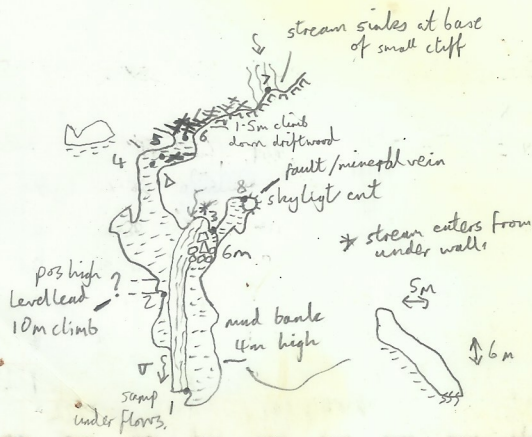 stream sinks at base
of small cliff
7
1-5m climb
down driftwood
5
6
4
fault/mineral vein
8
skyligt ent
3
6m
* stream enters from
under walls
pos high
level lead
10m climb
?
2
mud bank
4m high
5m
6m
1
under flows.